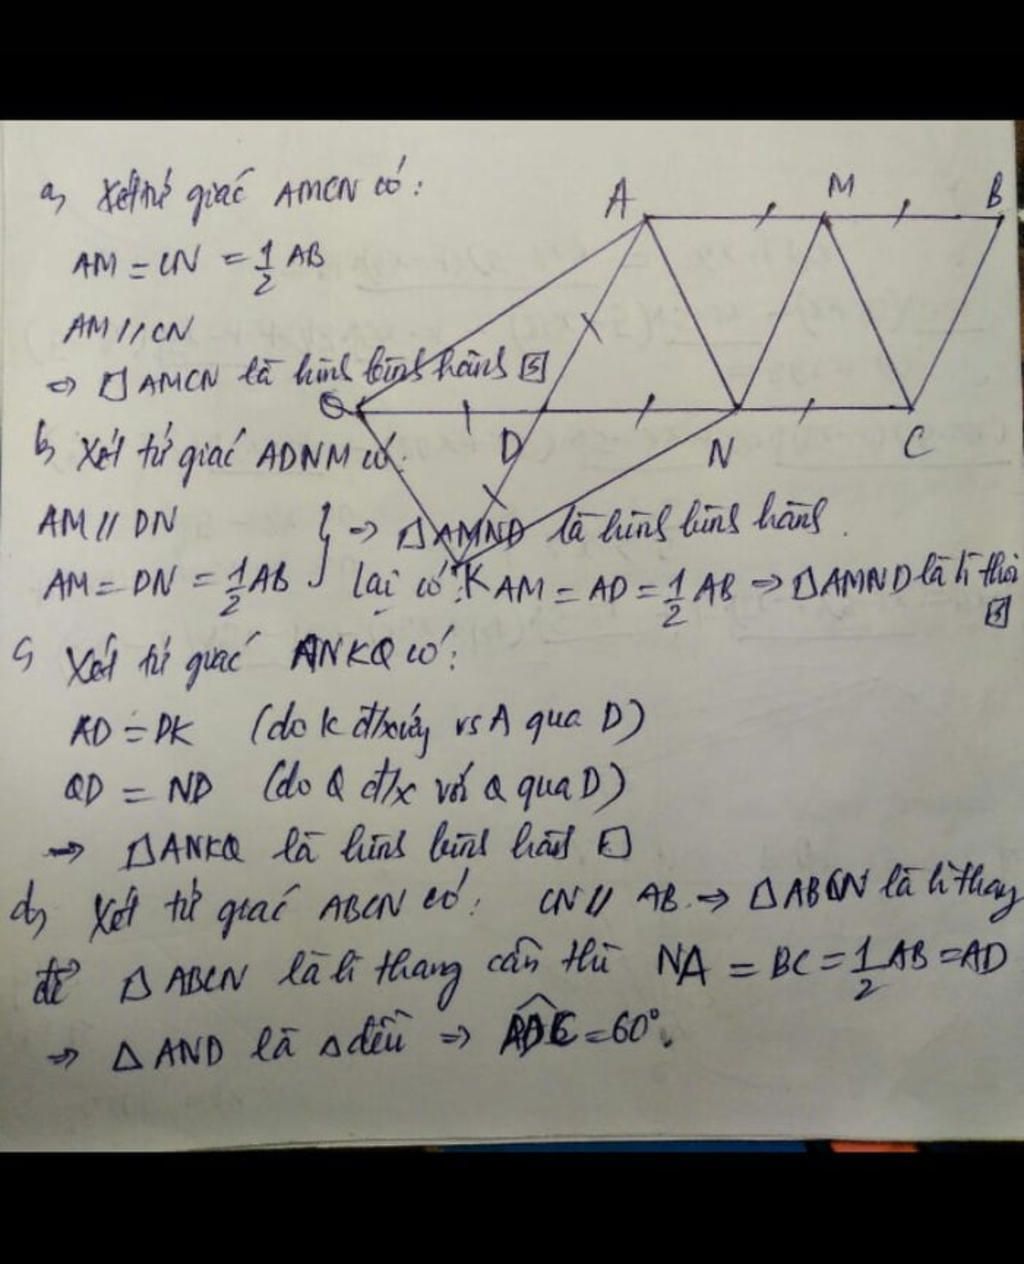 a, Xét tứ giác AMCN có:
AM = CN = 1/2 AB
AM // CN
=> □ AMCN là hình bình hành
A M B
Q D N C
K
b, Xét tứ giác ADNM có:
AM // DN
AM = DN = 1/2 AB } => □ AMND là hình bình hành.
lại có: AM = AD = 1/2 AB => □ AMND là h thoi
c, Xét tứ giác ANKQ có:
AD = DK (do K đ/xứng vs A qua D)
QD = ND (do Q đ/x với Q qua D)
=> □ ANKQ là hình bình hành
d, Xét tứ giác ABCN có: CN // AB => □ ABCN là h thang
để □ ABCN là h thang cân thì NA = BC = 1/2 AB = AD
=> △ AND là △ đều => ADC = 60°.